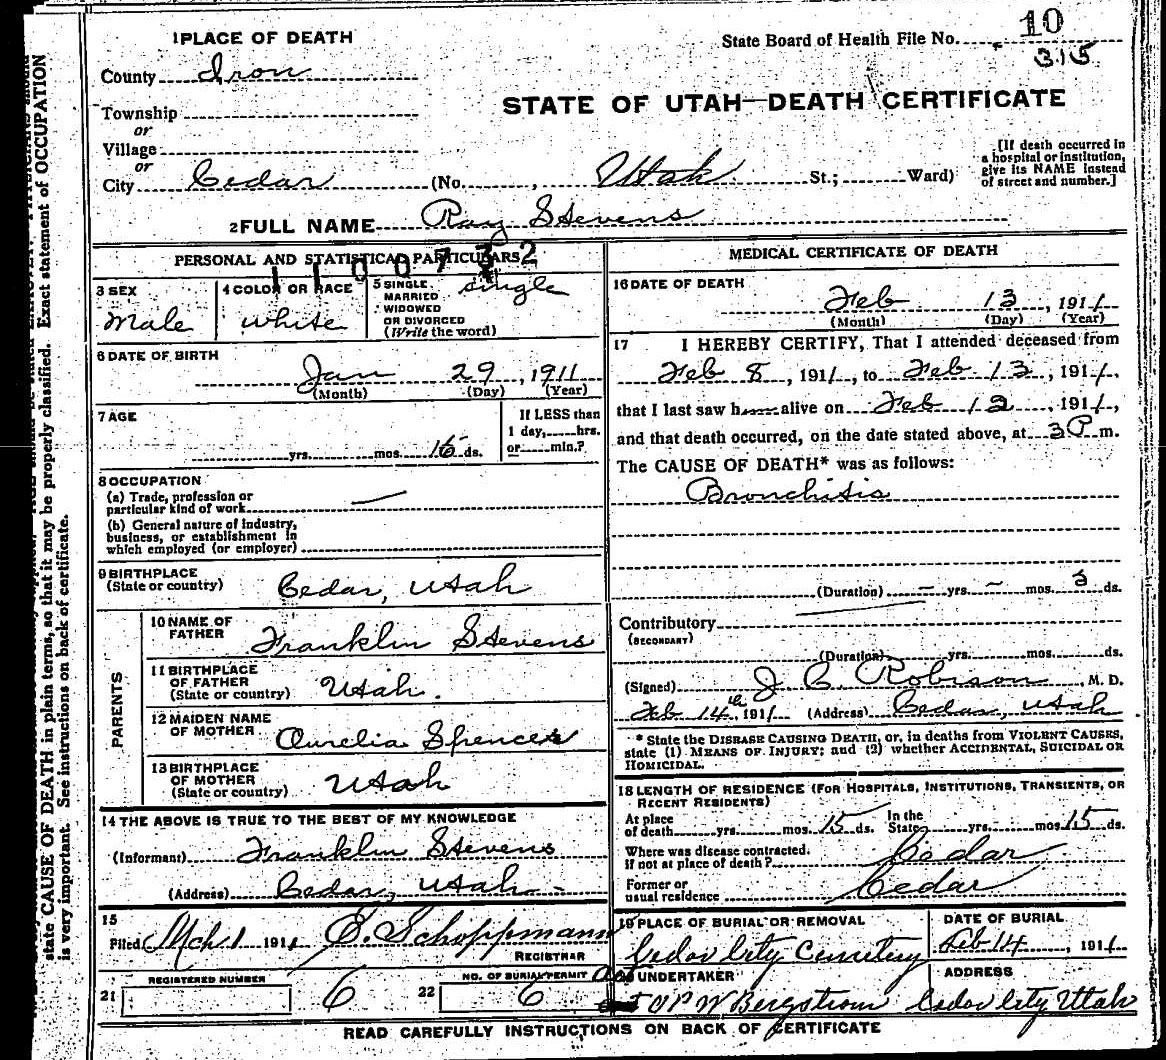 10
State Board of Health File No. 315
1 PLACE OF DEATH
County Iron
STATE OF UTAH—DEATH CERTIFICATE
Township
or
Village
or
City Cedar (No. , Utah St.; Ward)
[If death occurred in
a hospital or institution,
give its NAME instead
of street and number.]
2 FULL NAME Ray Stevens
PERSONAL AND STATISTICAL PARTICULARS
1100732
3 SEX
Male
4 COLOR OR RACE
white
5 SINGLE,
MARRIED
WIDOWED
OR DIVORCED
(Write the word)
single
6 DATE OF BIRTH
Jan 29, 1911
(Month) (Day) (Year)
7 AGE
yrs. mos. 15 ds.
If LESS than
1 day, hrs.
or min.?
8 OCCUPATION
(a) Trade, profession or
particular kind of work
(b) General nature of industry,
business, or establishment in
which employed (or employer)
9 BIRTHPLACE
(State or country) Cedar, Utah
PARENTS
10 NAME OF
FATHER Franklin Stevens
11 BIRTHPLACE
OF FATHER
(State or country) Utah.
12 MAIDEN NAME
OF MOTHER Aurelia Spencer
13 BIRTHPLACE
OF MOTHER
(State or country) Utah
14 THE ABOVE IS TRUE TO THE BEST OF MY KNOWLEDGE
(Informant) Franklin Stevens
(Address) Cedar, Utah
15
Filed Mch 1 1911 E. Schoppmann
REGISTRAR
REGISTERED NUMBER
21 6
NO. OF BURIAL PERMIT
22 6
MEDICAL CERTIFICATE OF DEATH
16 DATE OF DEATH
Feb 13, 1911
(Month) (Day) (Year)
17 I HEREBY CERTIFY, That I attended deceased from
Feb 8, 1911, to Feb 13, 1911,
that I last saw h alive on Feb 12, 1911,
and that death occurred, on the date stated above, at 3 P m.
The CAUSE OF DEATH* was as follows:
Bronchitis
(Duration) – yrs. – mos. 3 ds.
Contributory
(SECONDARY)
(Duration) yrs. mos. ds.
(Signed) J C Robison, M. D.
Feb 14th, 1911 (Address) Cedar, Utah
* State the DISEASE CAUSING DEATH, or, in deaths from VIOLENT CAUSES,
state (1) MEANS OF INJURY; and (2) whether ACCIDENTAL, SUICIDAL OR
HOMICIDAL.
18 LENGTH OF RESIDENCE (FOR HOSPITALS, INSTITUTIONS, TRANSIENTS, OR
RECENT RESIDENTS)
At place
of death yrs. mos. 15 ds.
In the
State yrs. mos. 15 ds.
Where was disease contracted.
if not at place of death? Cedar
Former or
usual residence Cedar
19 PLACE OF BURIAL OR REMOVAL
Cedar City Cemetery
DATE OF BURIAL
Feb 14, 1911
UNDERTAKER
P W Bergstrom
ADDRESS
Cedar City Utah
READ CAREFULLY INSTRUCTIONS ON BACK OF CERTIFICATE
Exact statement of OCCUPATION
state CAUSE OF DEATH in plain terms, so that it may be properly classified.
is very important. See instructions on back of certificate.